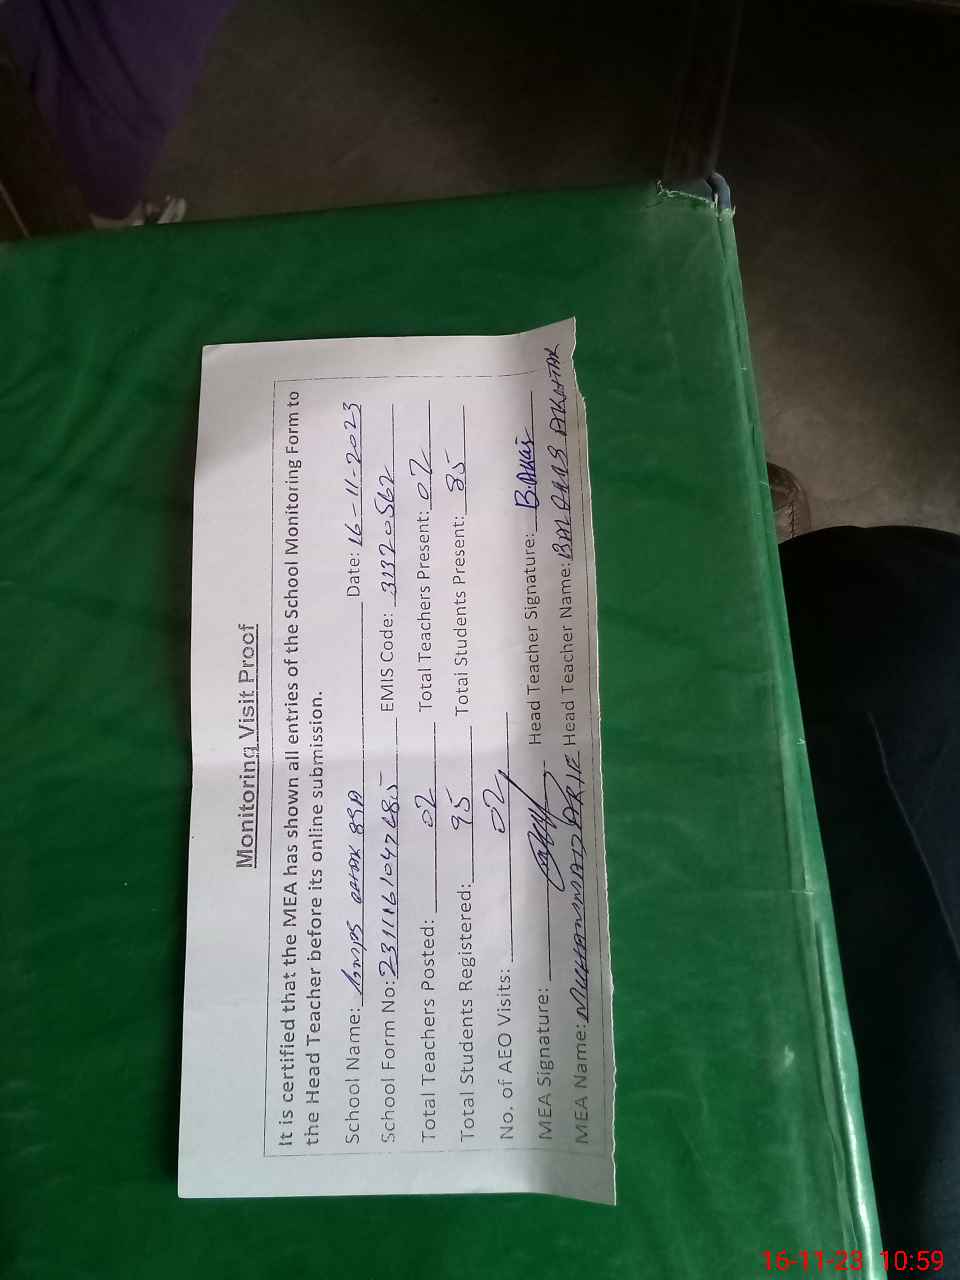 Monitoring Visit Proof
It is certified that the MEA has shown all entries of the School Monitoring Form to
the Head Teacher before its online submission.
School Name: GMPS 89A Date: 16-11-2023
School Form No: EMIS Code: 31320562
Total Teachers Posted: 02 Total Teachers Present: 02
Total Students Registered: 95 Total Students Present: 85
No. of AEO Visits: 02
MEA Signature: Head Teacher Signature:
MEA Name: MUHAMMAD ARIF Head Teacher Name: AKHTAR
16-11-23 10:59